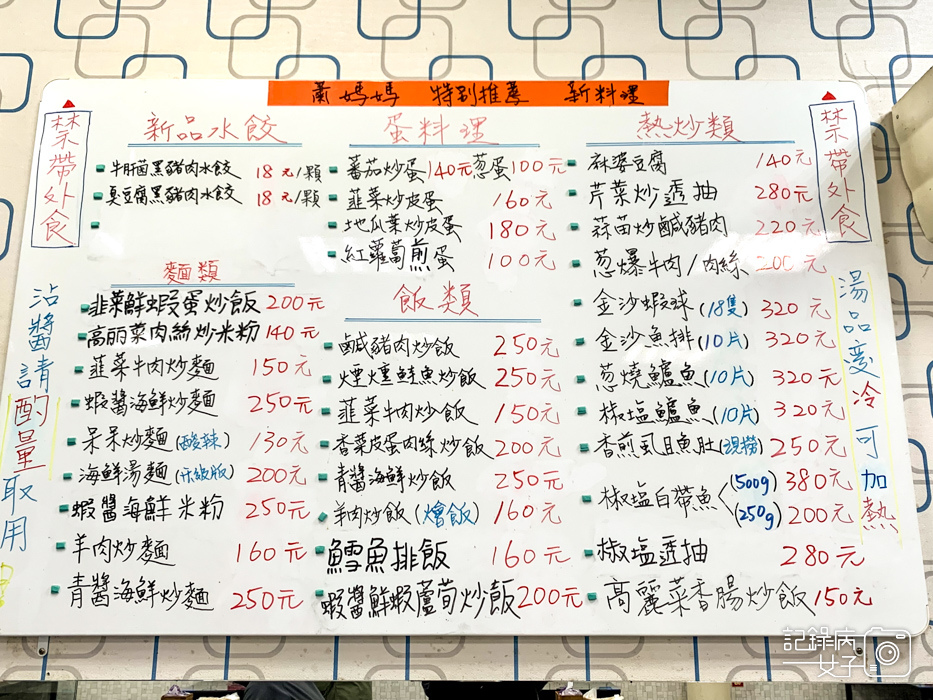 蕭媽媽 特別推薦 新料理
禁帶外食
新品水餃
牛肝菌黑豬肉水餃 18元/顆
臭豆腐黑豬肉水餃 18元/顆
麵類
韭菜鮮蝦蛋炒飯 200元
高丽菜肉絲炒米粉 140元
韮菜牛肉炒麵 150元
蝦醬海鮮炒麵 250元
呆呆炒麵(酸辣) 130元
海鮮湯麵(升級版) 200元
蝦醬海鮮米粉 250元
羊肉炒麵 160元
青醬海鮮炒麵 250元
蛋料理
蕃茄炒蛋140元 蔥蛋100元
韮菜炒皮蛋 160元
地瓜葉炒皮蛋 180元
紅蘿蔔煎蛋 100元
飯類
鹹豬肉炒飯 250元
煙燻鮭魚炒飯 250元
韮菜牛肉炒飯 150元
香菜皮蛋肉絲炒飯 200元
青醬海鮮炒飯 250元
羊肉炒飯(燴飯) 160元
鱈魚排飯 160元
蝦醬鮮蝦蘆荀炒飯 200元
熱炒類
麻婆豆腐 140元
芹菜炒透抽 280元
蒜苗炒鹹豬肉 220元
蔥爆牛肉/肉絲 200元
金沙蝦球(18隻) 320元
金沙魚排(10片) 320元
蔥燒鱸魚(10片) 320元
椒塩鱸魚(10片) 320元
香煎虱目魚肚(現撈) 250元
椒塩白帶魚 (500g) 380元
(250g) 200元
椒塩透抽 280元
高麗菜香腸炒飯 150元
禁帶外食
沾醬請酌量取用
湯品變冷可加熱
記錄病女子